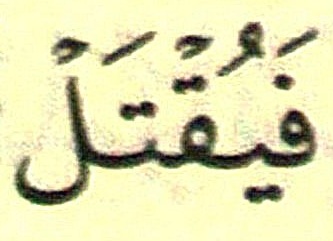 فَيُقْتَلْ